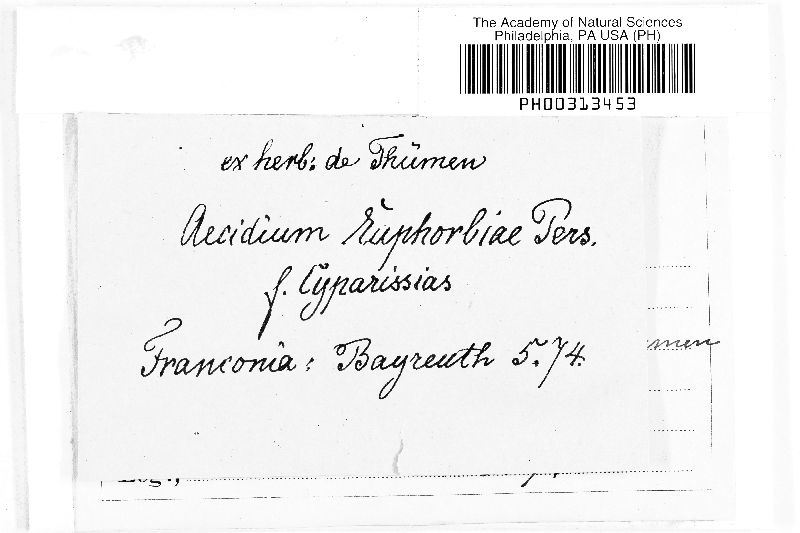 The Academy of Natural Sciences
Philadelphia, PA USA (PH)
PH00313453
ex herb: de Thümen
Aecidium Euphorbiae Pers.
f. Cyparissias
Franconia: Bayreuth 5.74.
men